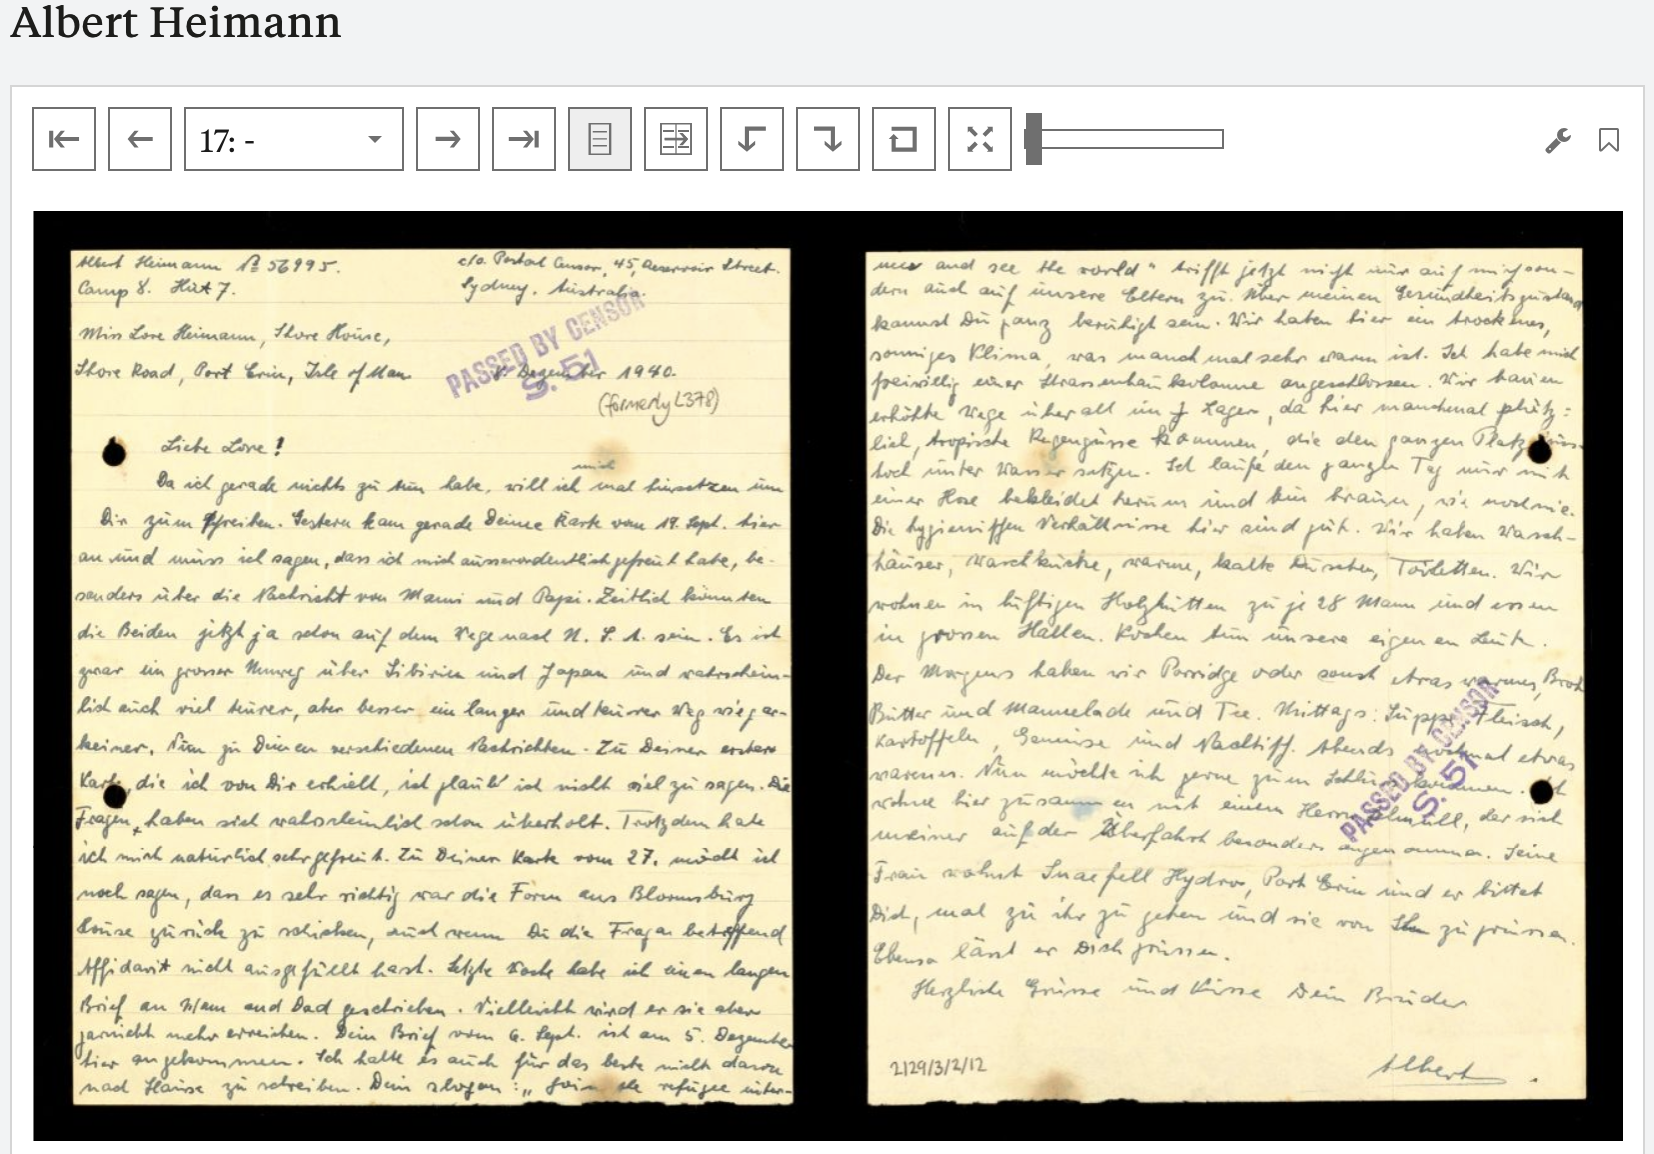 Albert Heimann
17: -
Albert Heimann № 56995.
c/o. Postal Censor, 45, Reservoir Street.
Camp 8. Hut 7.
Sydney. Australia.
Miss Lore Heimann, Shore House,
PASSED BY CENSOR
S. 51
Shore Road, Port Erin, Isle of Man
Dezember 1940.
(formerly L378)
Liebe Lore!
mich
Da ich gerade nichts zu tun habe, will ich mal hinsetzen um
Dir zum schreiben. Gestern kam gerade Deine Karte vom 19. Sept. hier
an und muss ich sagen, dass ich mich ausserordentlich gefreut habe, be-
sonders über die Nachricht von Mami und Papi. Zeitlich könnten
die Beiden jetzt ja schon auf dem Wege nach U. S. A. sein. Es ist
zwar ein grosser Umweg über Sibirien und Japan und wahrschein-
lich auch viel teurer, aber besser ein langer und teurer Weg wie gar-
keiner. Nun zu Deinen verschiedenen Nachrichten. Zu Deiner ersten
Karte, die ich von Dir erhielt, ich glaub' ich nicht viel zu sagen. Die
Fragen haben sich wahrscheinlich schon überholt. Trotzdem habe
ich mich natürlich sehr gefreut. Zu Deiner Karte vom 27. möcht ich
noch sagen, dass es sehr richtig war die Form aus Bloomsbury
House zurück zu schicken, auch wenn Du die Fragen betreffend
Affidavit nicht ausgefüllt hast. Letzte Woche habe ich einen langen
Brief an Mum and Dad geschrieben. Vielleicht wird er sie aber
garnicht mehr erreichen. Dein Brief vom 6. Sept. ist am 5. Dezember
hier angekommen. Ich halte es auch für das beste nicht davon
nach Hause zu schreiben. Dein slogan: „Join the refugee inter-
ness and see the world" trifft jetzt nicht nur auf mich son-
dern auch auf unsere Eltern zu. Über meinen Gesundheitszustand
kannst Du ganz beruhigt sein. Wir haben hier ein trockenes,
sonniges Klima, was manchmal sehr warm ist. Ich habe mich
freiwillig einer Strassenbaukolonne angeschlossen. Wir bauen
erhöhte Wege überall im Lager, da hier manchmal plötz=
lich, tropische Regengüsse kommen, die den ganzen Platz
hoch unter Wasser setzen. Ich laufe den ganzen Tag nur mit
einer Hose bekleidet herum und bin braun, wie noch nie.
Die hygienischen Verhältnisse hier sind gut. Wir haben Wasch-
häuser, Waschküche, warme, kalte Duschen, Toiletten. Wir
wohnen in luftigen Holzhütten zu je 28 Mann und essen
in grossen Hallen. Kochen tun unsere eigenen Leute.
Des Morgens haben wir Porridge oder sonst etwas warmes, Brot
Butter und Marmelade und Tee. Mittags: Suppe, Fleisch,
Kartoffeln, Gemüse und Nachtisch. Abends nochmal etwas
warmes. Nun möchte ich gerne zum Schluss kommen. Ich
wohne hier zusammen mit einem Herrn, der sich
meiner auf der Überfahrt besonders angenommen. Seine
PASSED BY CENSOR
S. 51
Frau wohnt Snaefell Hydro, Port Erin und er bittet
Dich, mal zu ihr zu gehen und sie von Ihm zu grüssen.
Ebenso lässt er Dich grüssen.
Herzliche Grüsse und Küsse Dein Bruder
2129/3/2/12
Albert